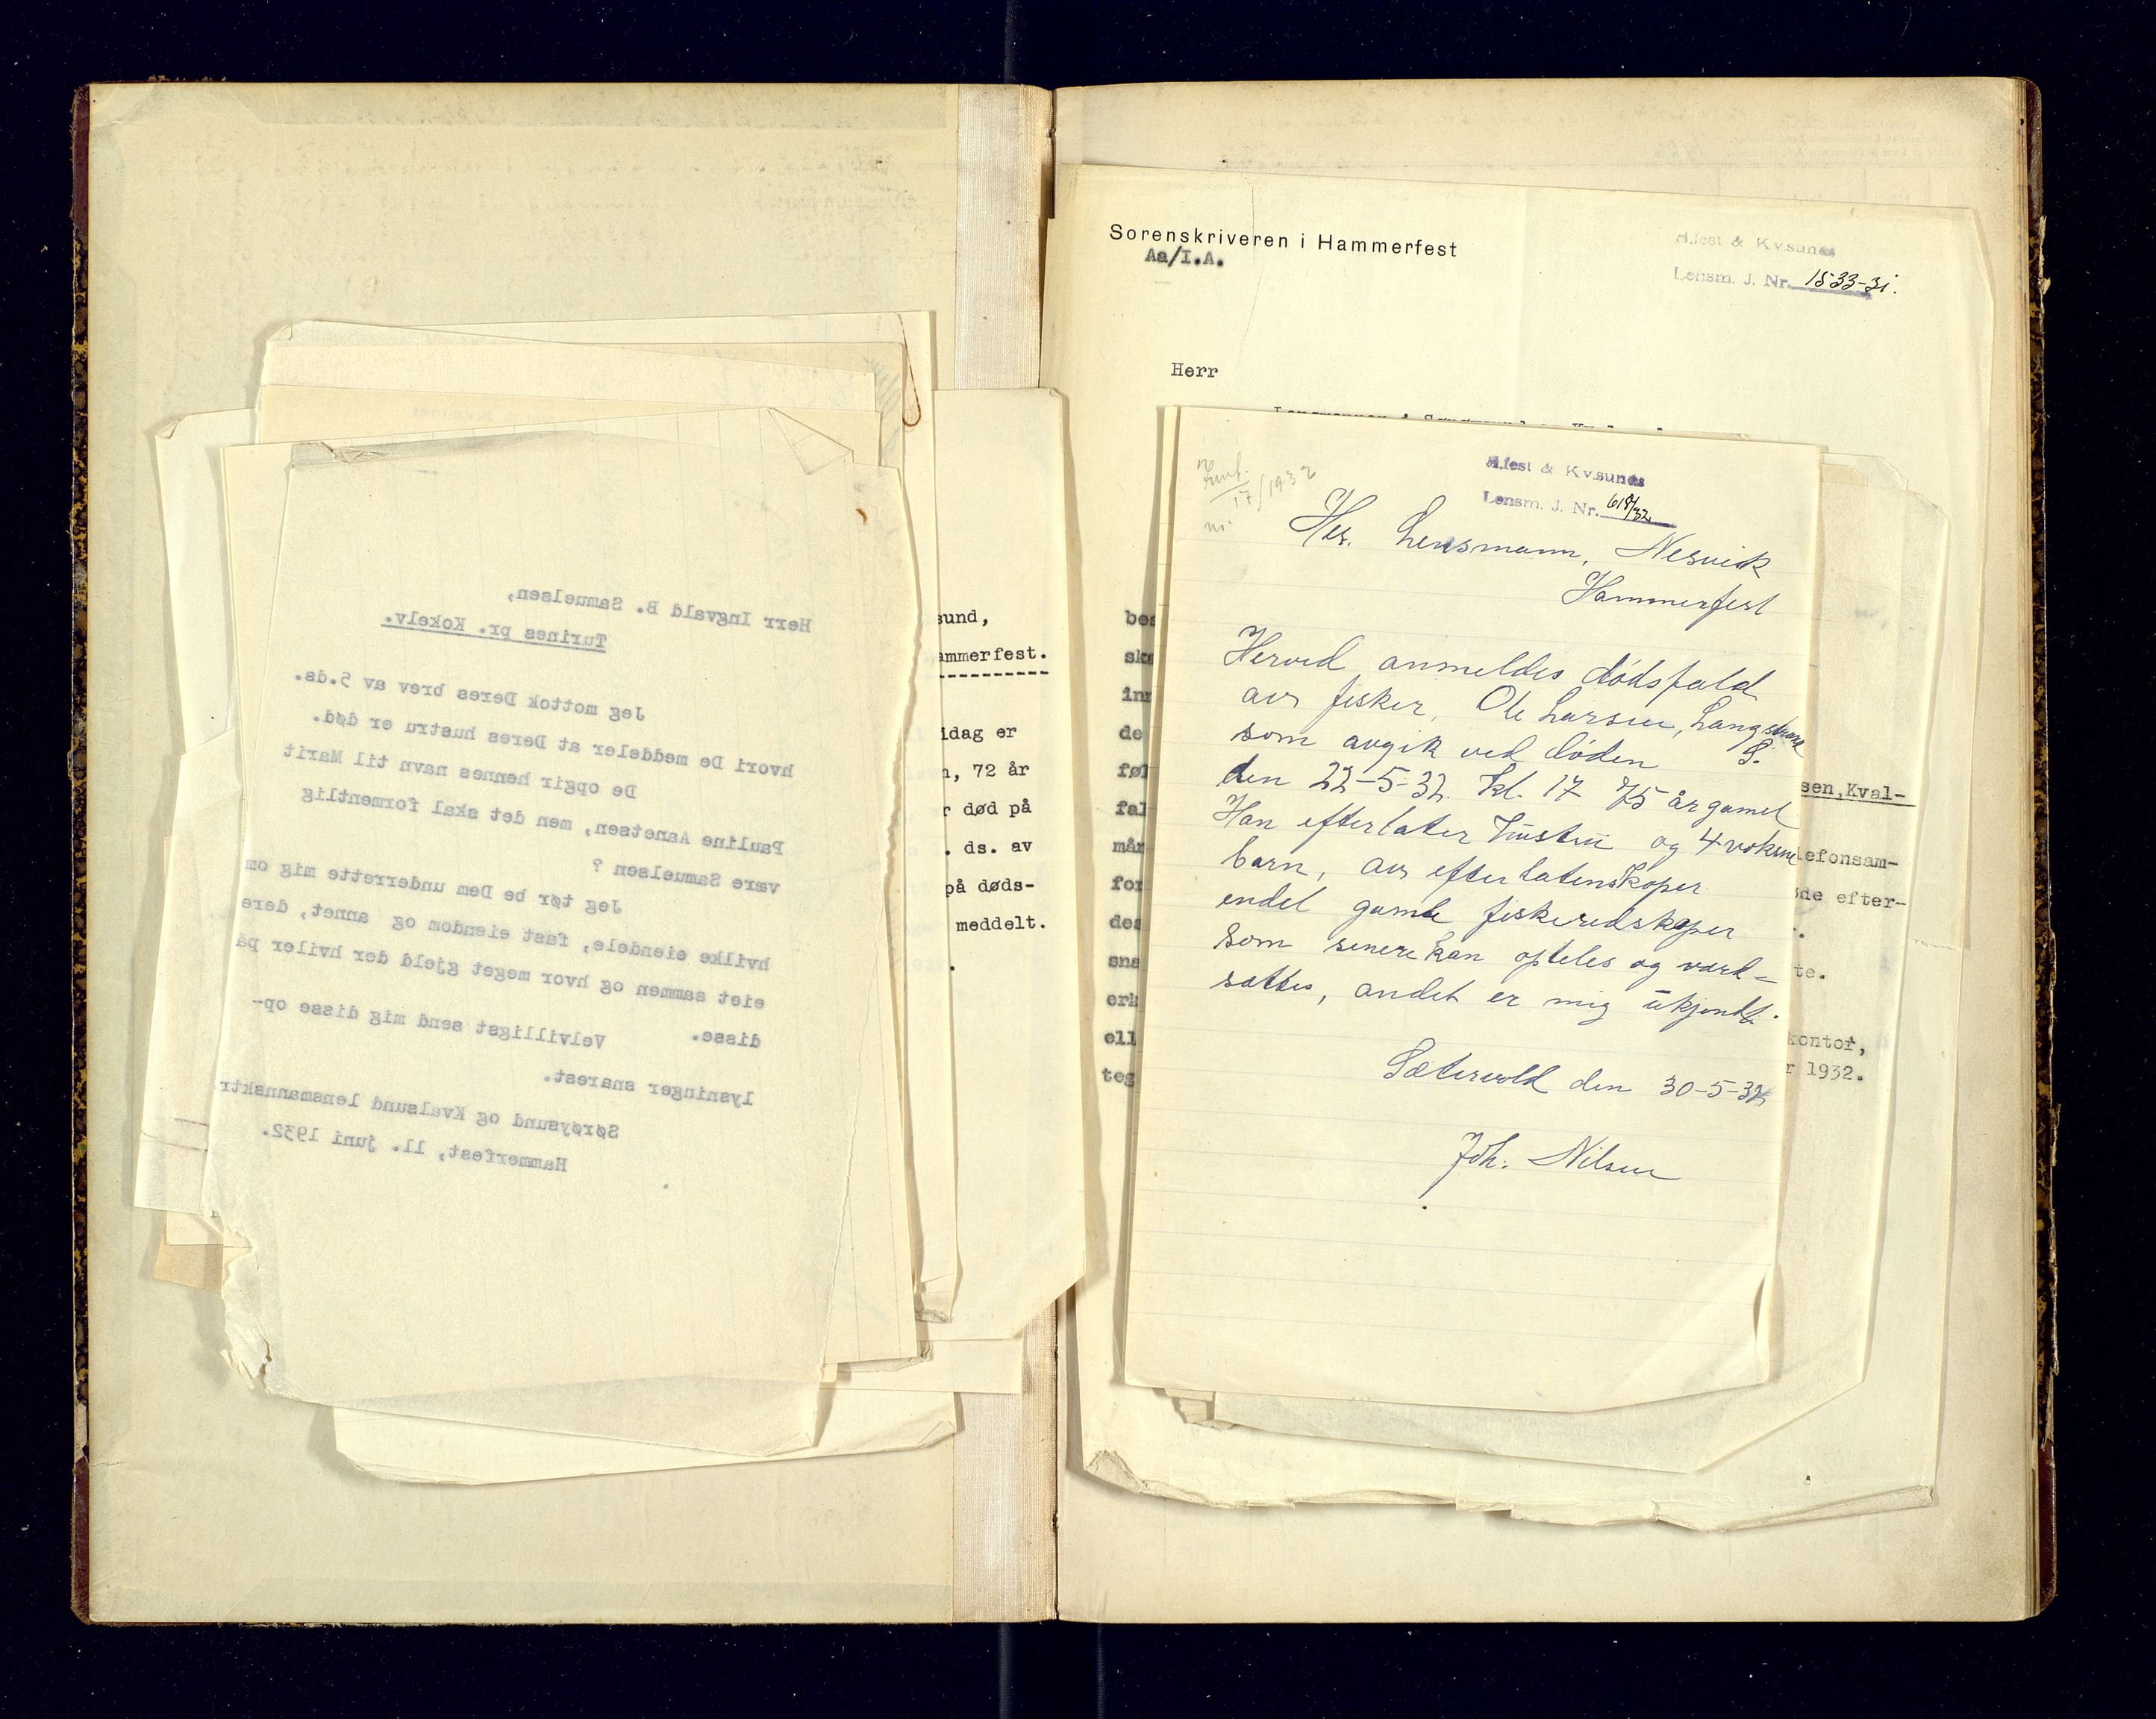 Herr Ingvald B. Samuelsen,
Turines pr. Kokelv.
Jeg mottok Deres brev av 5.ds.
hvori De meddeler at Deres hustru er død.
De opgir hennes navn til Marit
Pauline Aanetsen, men det skal formentlig
være Samuelsen ?
Jeg tør be Dem underrette mig om
hvilke eiendele, fast eiendom og annet, dere
eiet sammen og hvor meget gjeld der hviler på
disse. Velvilligst send mig disse op-
lysninger snarest.
Sørøysund og Kvalsund lensmannsktr.
Hammerfest, 11. juni 1932.
sund,
ammerfest.
idag er
n, 72 år
r død på
. ds. av
på døds-
meddelt.
Sorenskriveren i Hammerfest
Aa/I.A.
H.fest & Kv.sunds
Lensm. J. Nr. 1533-31.
Herr
bes
ske
inn
de
føl
fal
mån
for
des
sna
erk
ell
teg
H.fest & Kv.sunds
Lensm. J. Nr. 618/32
17/1932
Hr. Lensmann, Nesvik
Hammerfest
Herved anmeldes dødsfald
av fisker, Ole Larsen, Langstrand
S.
som avgik ved døden
den 22-5-32. Kl. 17 75 år gamel
Han efterlater hustru og 4 voksne
barn, av efterlatenskaper
endel gamle fiskeredskaper
som senere kan opteles og verd-
sættes, andet er mig ukjendt.
Sætervold den 30-5-32
Joh. Nilsen
sen,Kval-
lefonsam-
de efter-
te.
kontor,
r 1932.